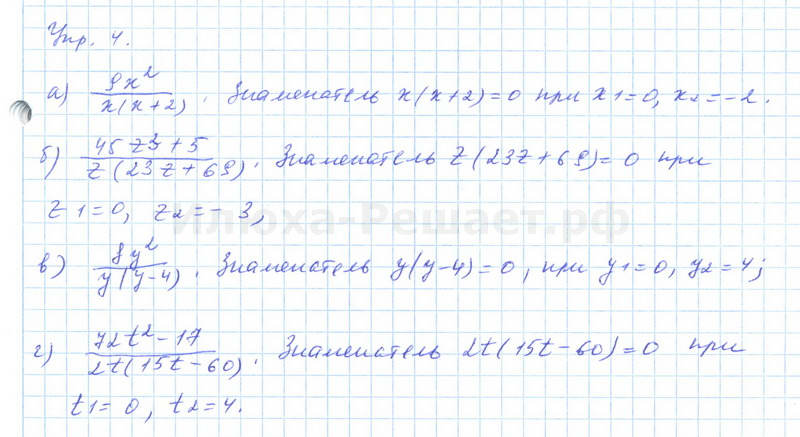 Упр. 4.
а) 9x²/x(x+2). Знаменатель x(x+2)=0 при x1=0, x2=-2.
б) 45z³+5/z(23z+69). Знаменатель z(23z+69)=0 при
z1=0, z2=-3,
Илюха-Решает.рф
в) 8y²/y(y-4). Знаменатель y(y-4)=0, при y1=0, y2=4;
г) 72t²-17/2t(15t-60). Знаменатель 2t(15t-60)=0 при
t1=0, t2=4.